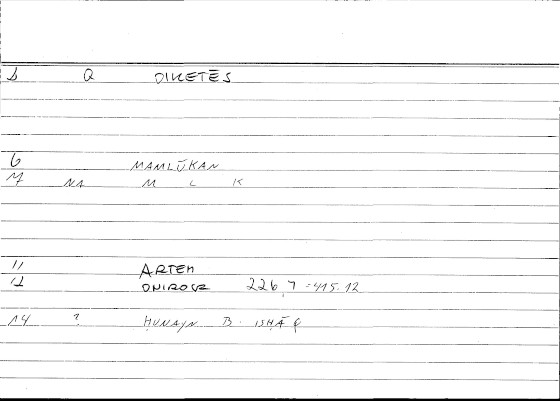 S Q OIKETĒS
6 MAMLŪKAN
7 NA M L K
11 ARTEM
12 ONIROCR 226,7 - 415.12
14 ? ḤUNAYN B. ISḤĀQ